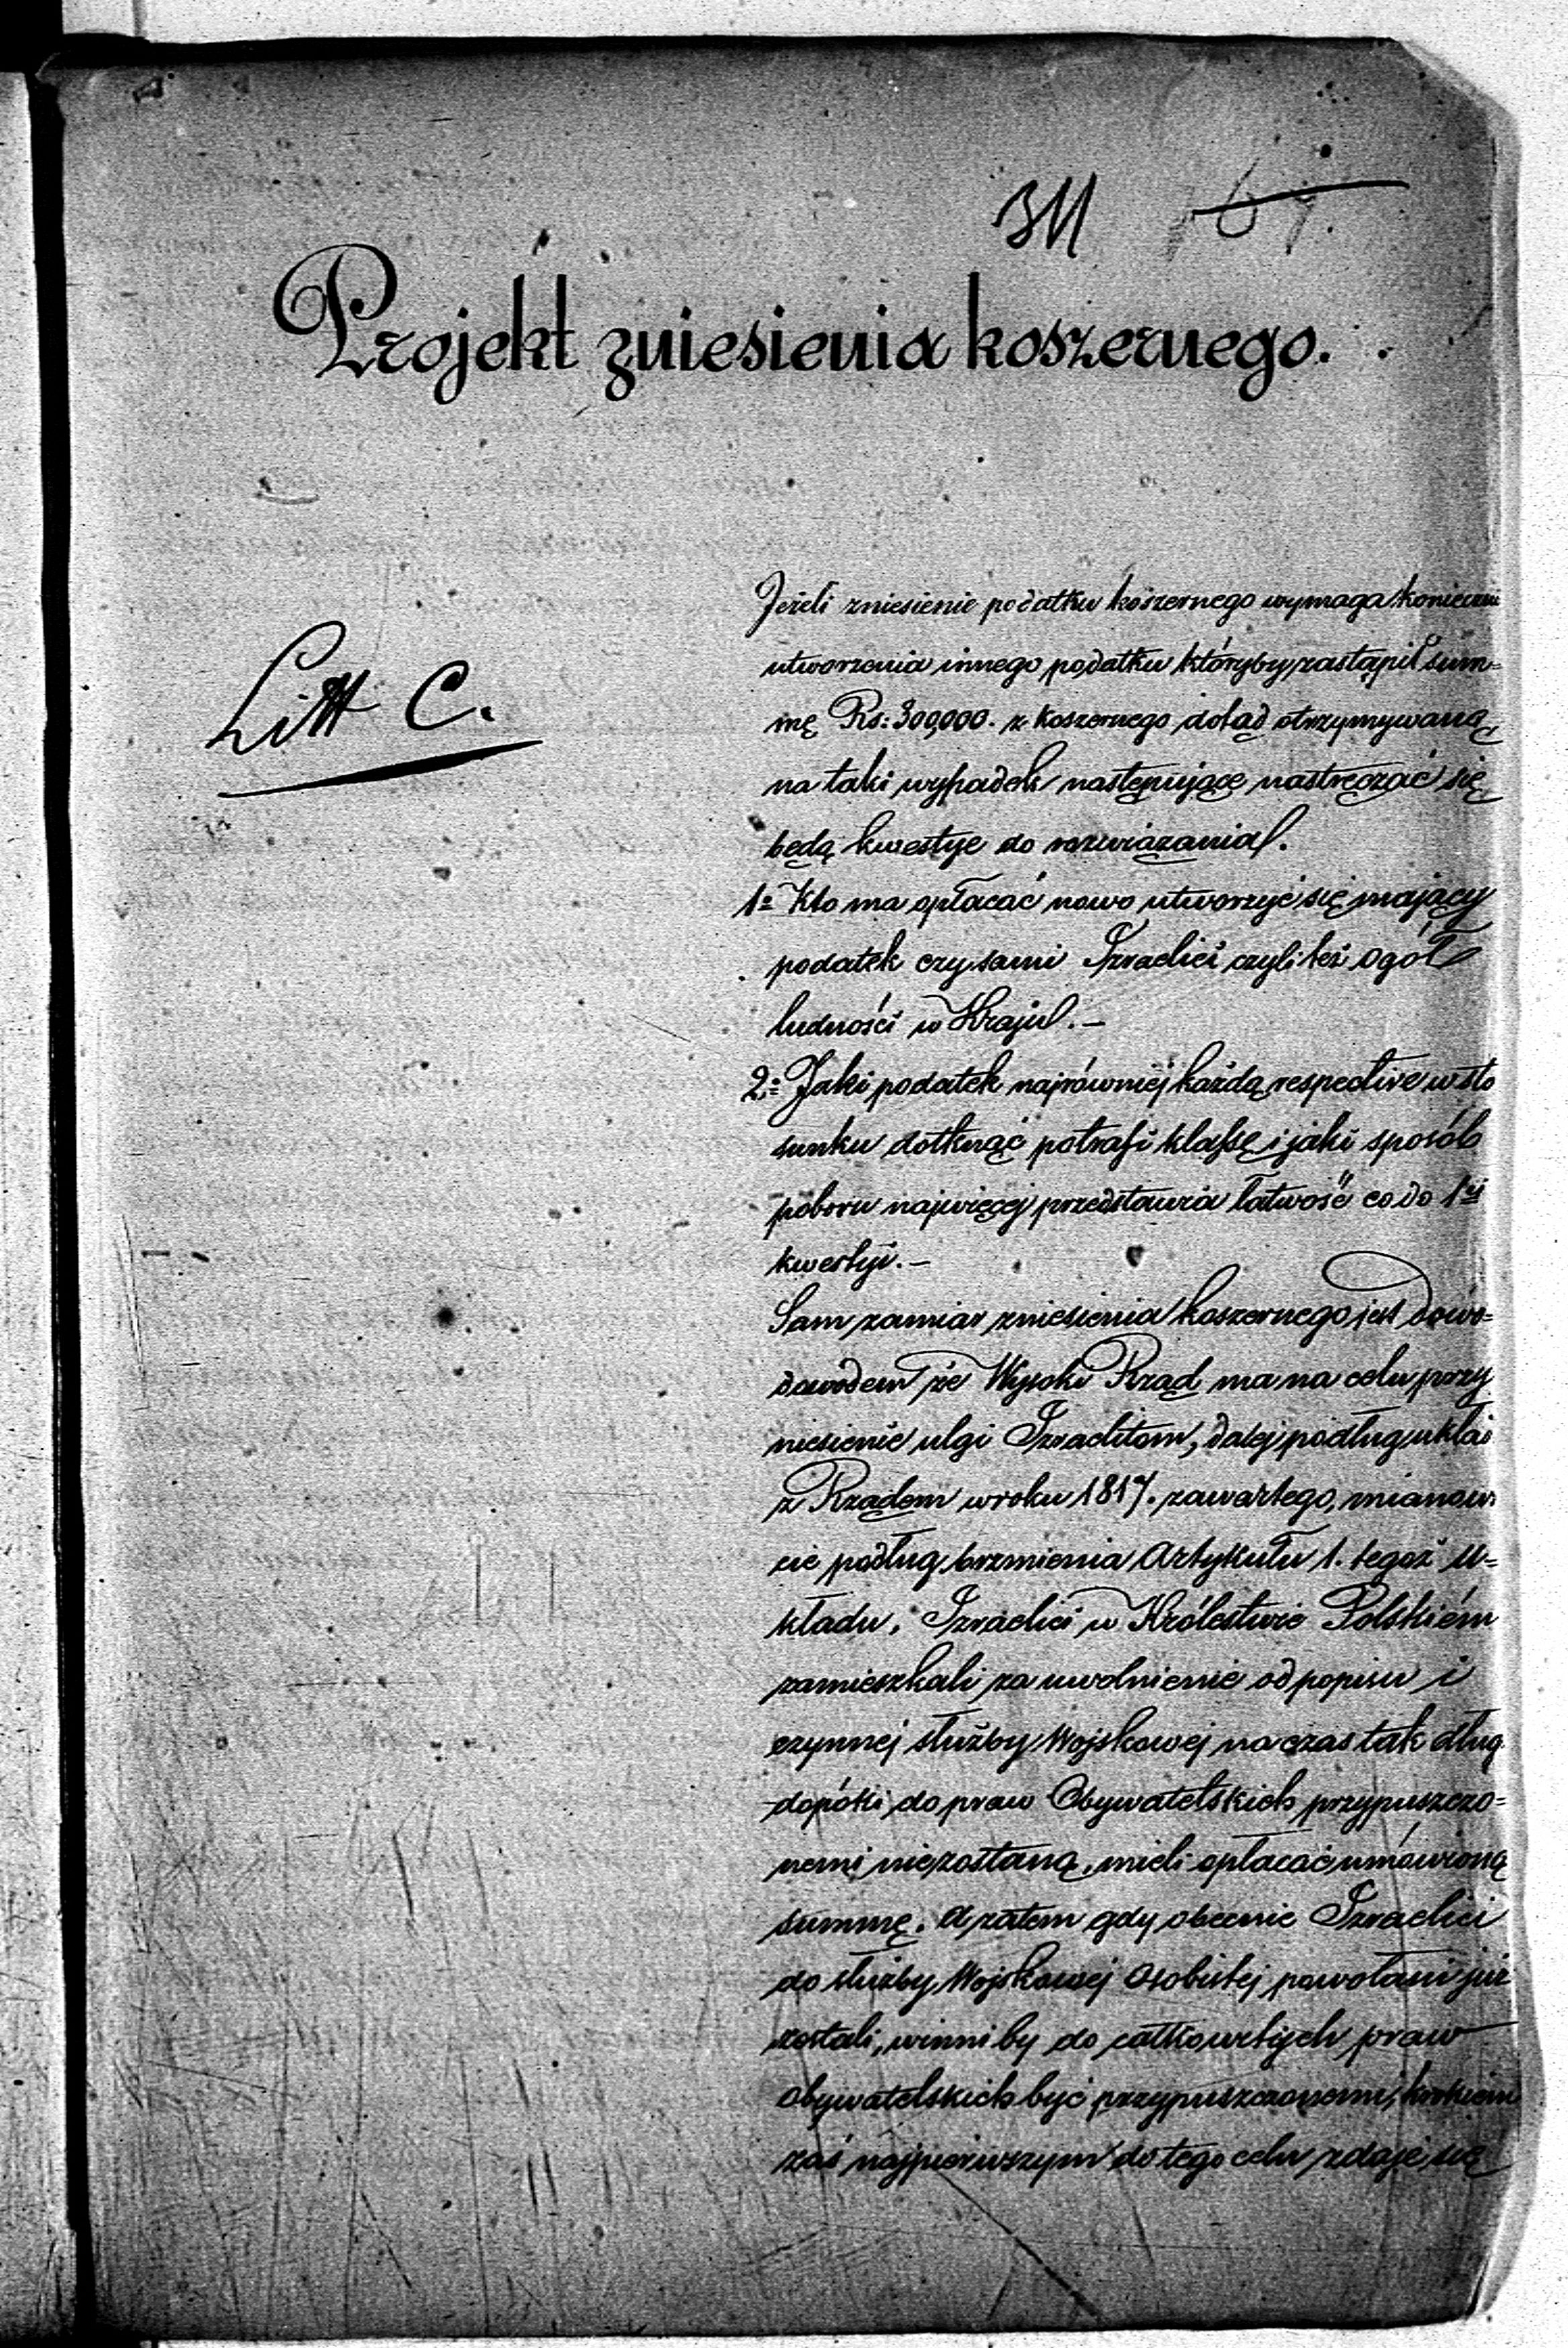 311
Projekt zniesienia koszernego.
Litt C.
Jeżeli zniesienie podatku koszernego wymaga koniecznie
utworzenia innego podatku któryby zastąpił sum=
mę Rs: 300,000. z koszernego dotąd otrzymywaną
na taki wypadek następujące nastręczać się
będą kwestye do rozwiązania.
1º Kto ma opłacać nowo utworzyć się mający
podatek czy sami Izraelici czyli też ogół
ludności w Kraju. –
2º Jaki podatek najrówniej każdą respective w sto
sunku dotknąć potrafi klassę i jaki sposób
poboru najwięcej przedstawia łatwość co do 1ej
kwestyi. –
Sam zamiar zniesienia koszernego jest dowo=
dowodem że Wysoki Rząd ma na celu przy
niesienie ulgi Izraelitom, dalej podług układ
z Rządem w roku 1817. zawartego, mianowi
cie podług brzmienia Artykułu 1. tegoż u=
kładu, Izraelici w Królestwie Polskiém
zamieszkali za uwolnienie od popisu i
czynnej służby Wojskowej na czas tak dług
dopóki do praw Obywatelskich przypuszczo=
nemi niezostaną, mieli opłacać umówioną
summę. A zatem gdy obecnie Izraelici
do służby Wojskowej Osobistej powołani już
zostali, winni by do całkowitych praw
obywatelskich być przypuszczonemi, krokiem
zaś najpierwszym do tego celu zdaje się